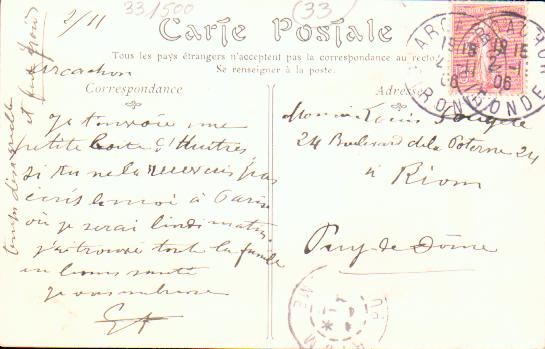 2/11
33/500
(33)
Carte Postale
Tous les pays étrangers n'acceptent pas la correspondance au recto
Se renseigner à la poste.
Correspondance
Adresse
Arcachon
Je t'envoie une
petite boite d'Huîtres
si tu ne la recevais pas
écris le moi à Paris
où je serai lundi matin.
J'ai trouvé toute la famille
en bonne santé
je vous embrasse
temps désagréable
et froid
Monsieur Louis
24 Boulevard de la Poterne 24
à Riom
Puy-de-Dôme
ARCACHON
GIRONDE
2-11
06